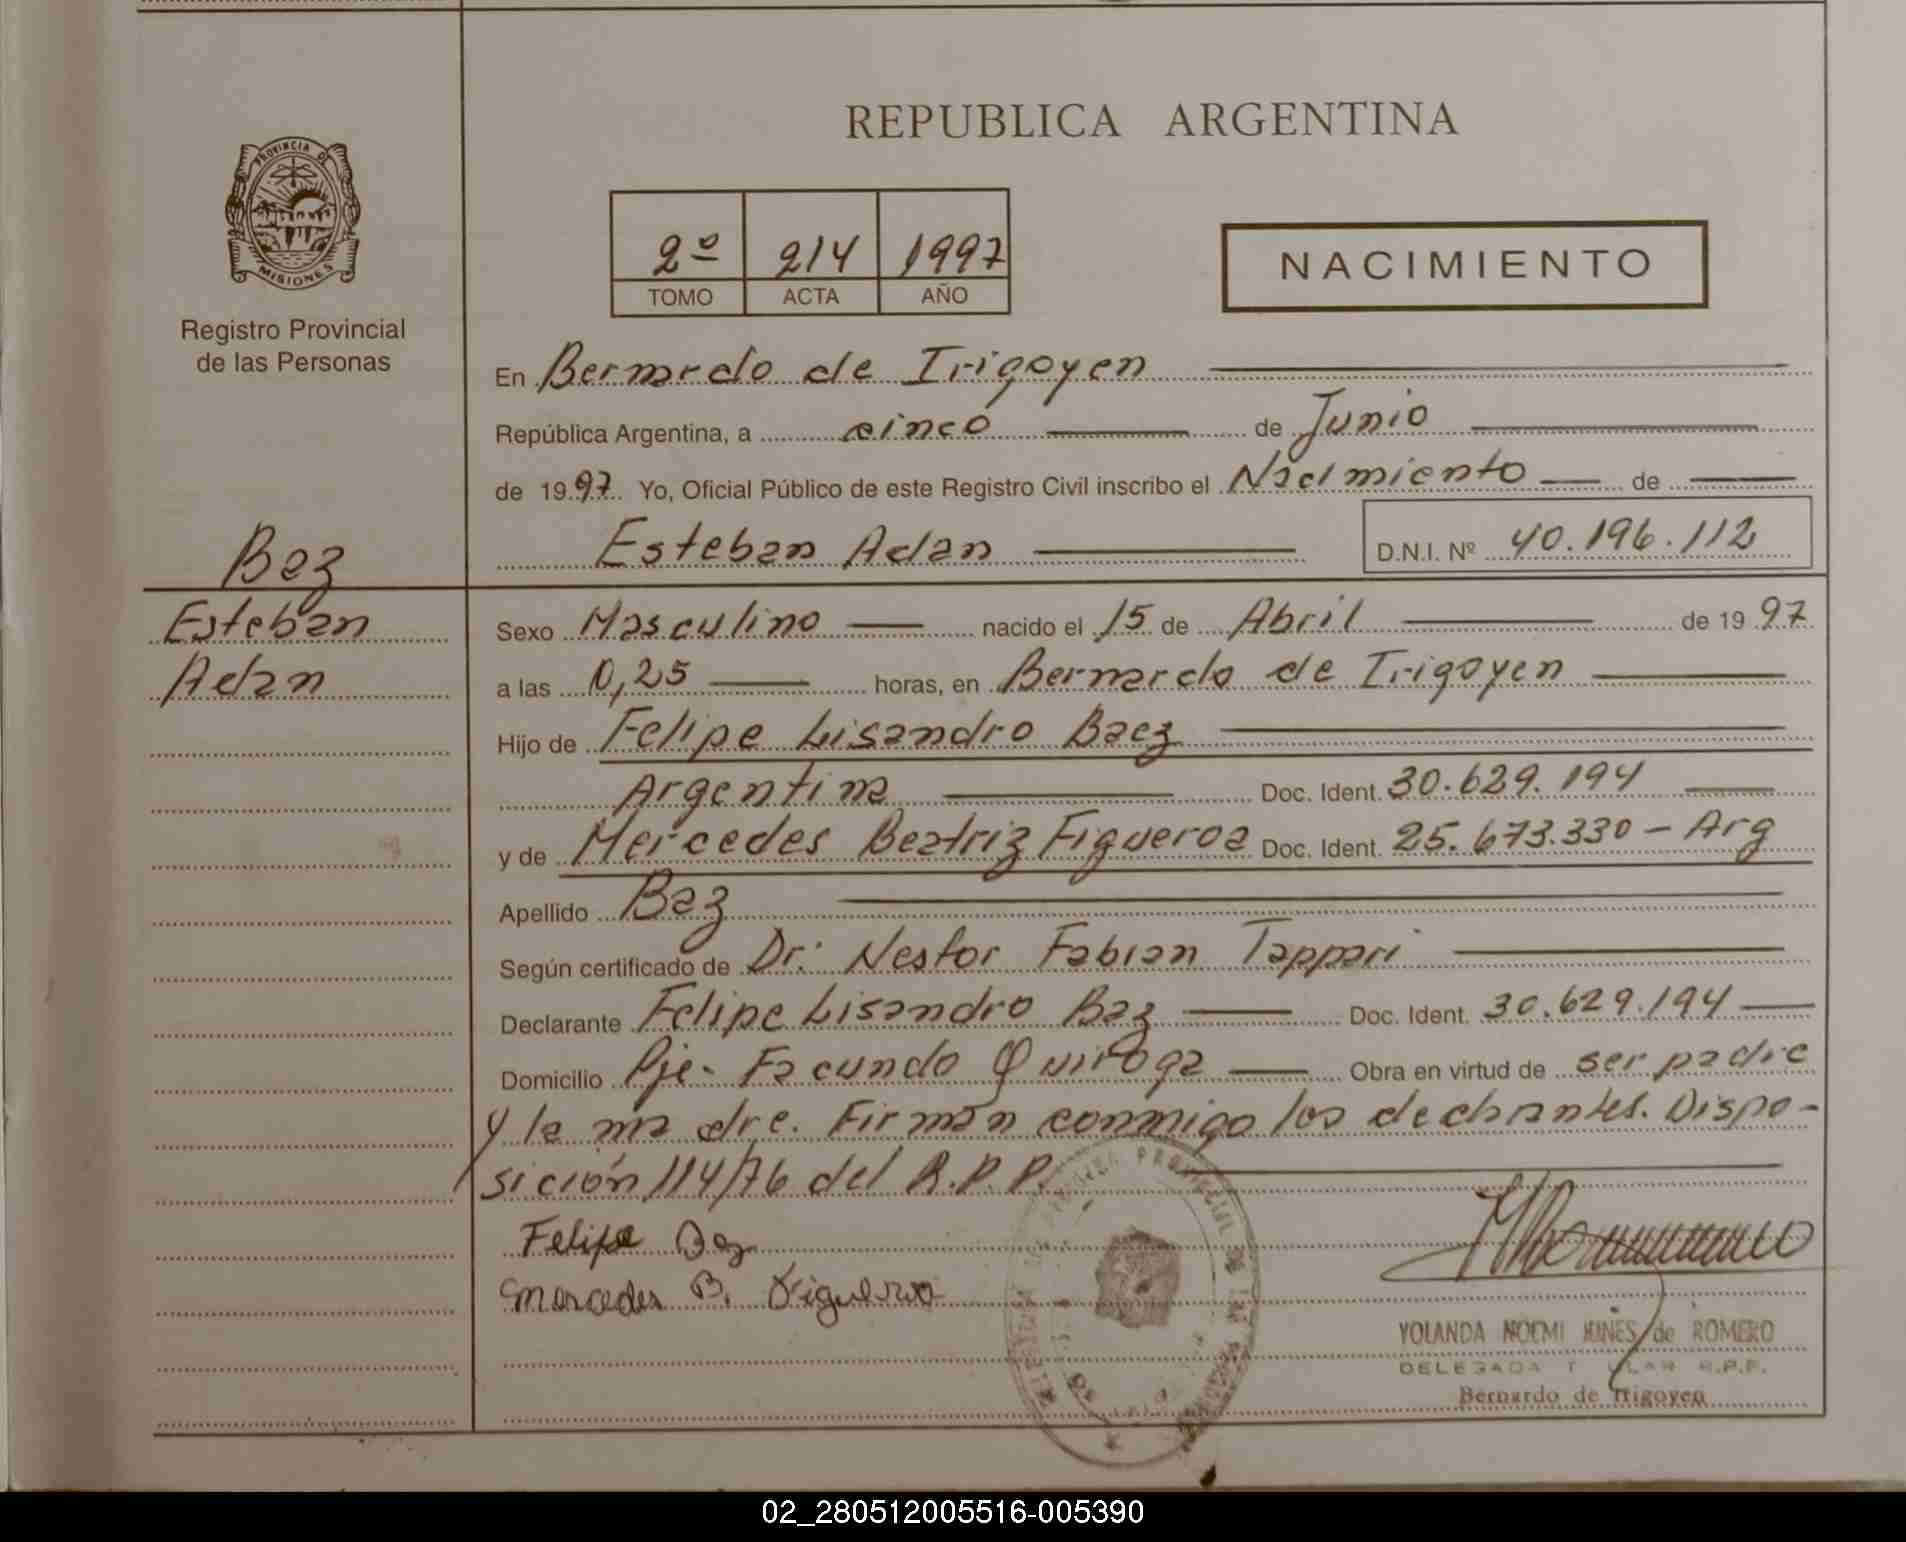 REPUBLICA ARGENTINA
PROVINCIA DE
MISIONES
Registro Provincial
de las Personas
2º 214 1997
TOMO ACTA AÑO
NACIMIENTO
En Bernardo de Irigoyen
República Argentina, a cinco de Junio
de 1997 Yo, Oficial Público de este Registro Civil inscribo el Nacimiento de
Esteban Adan D.N.I. Nº 40.196.112
Baz
Esteban
Adan
Sexo Masculino nacido el 15 de Abril de 1997
a las 0,25 horas, en Bernardo de Irigoyen
Hijo de Felipe Lisandro Baez
Argentina Doc. Ident. 30.629.194
y de Mercedes Beatriz Figueroa Doc. Ident. 25.673.330 - Arg
Apellido Baz
Según certificado de Dr. Nestor Fabian Tappari
Declarante Felipe Lisandro Baz Doc. Ident. 30.629.194
Domicilio Pje. Facundo Quiroga Obra en virtud de ser padre
y la madre. Firman conmigo los declarantes. Dispo-
sición 114/76 del R.P.P.
Felipe Baz
Mercedes B. Figueroa
YOLANDA NOEMI de ROMERO
DELEGADA R.P.P.
Bernardo de Irigoyen
02_280512005516-005390